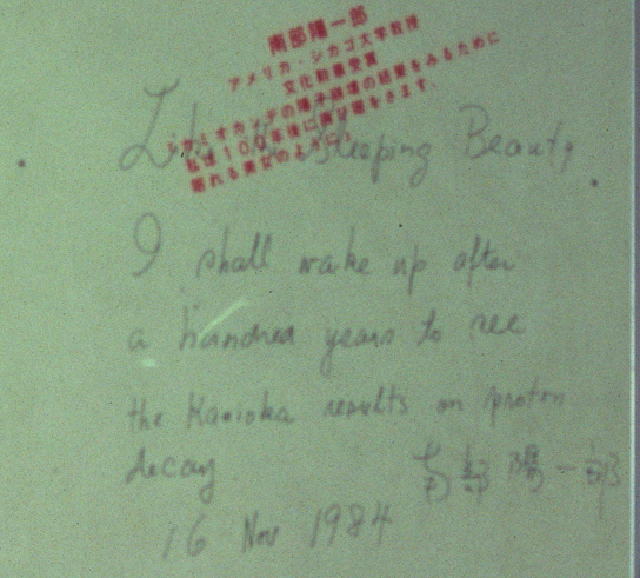 南部陽一郎
アメリカ・シカゴ大学教授
文化勲章受賞
カミオカンデの陽子崩壊の結果をみるために
私は100年後に再び目をさます、
眠れる美女のように。
Like the Sleeping Beauty
I shall wake up after
a hundred years to see
the Kamioka results on proton
decay
南部陽一郎
16 Nov 1984